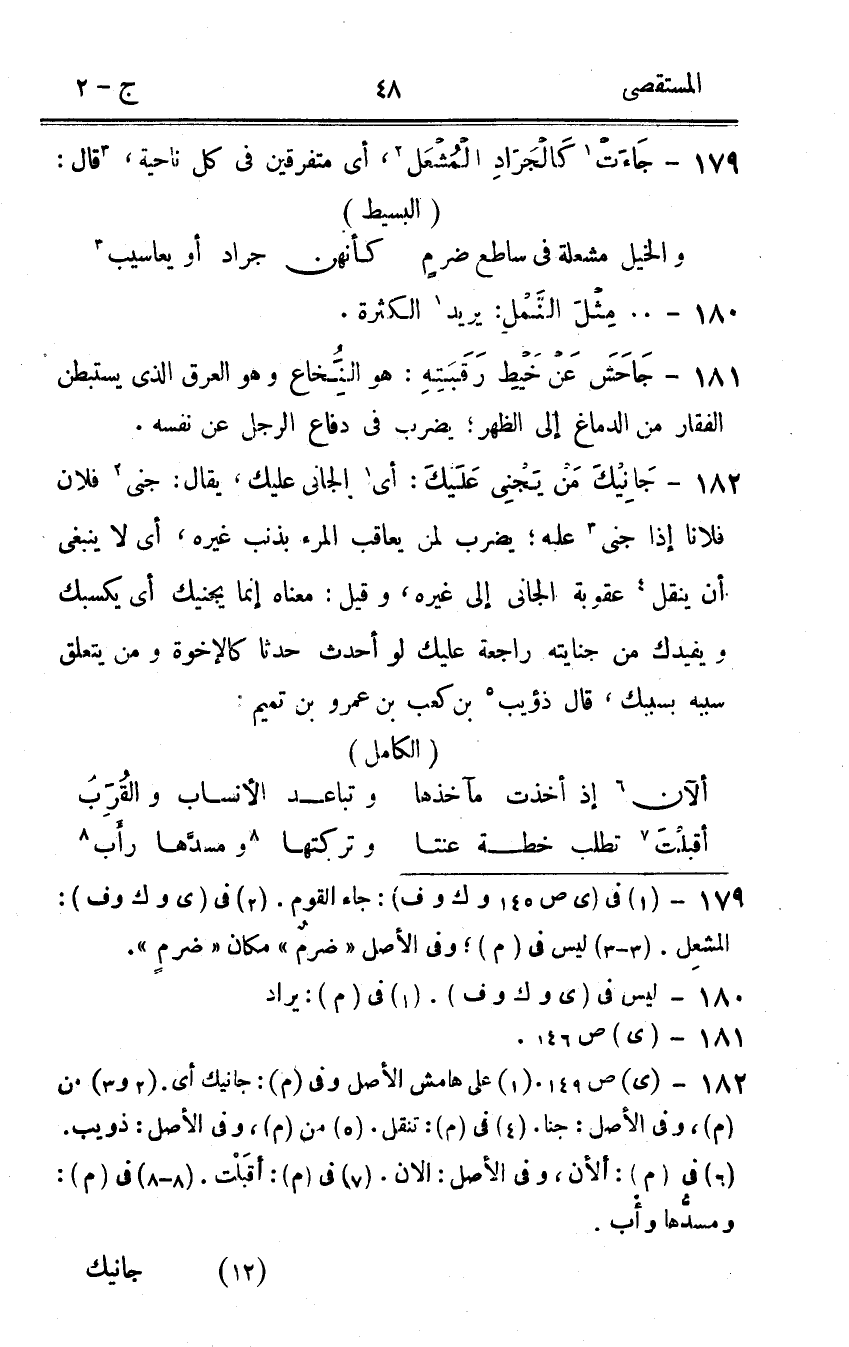 المستقصى ٤٨ ج - ٢
١٧٩ - جَاءَتْ١ كَالْجَرَادِ الْمُشْعَلِ٢، أى متفرقين فى كل ناحية، ٣قال:
( البسيط )
و الخيل مشعلة فى ساطع ضرمٍ كأنهن جراد أو يعاسيب٣
١٨٠ - ٠٠ مِثْلَ النَّمْلِ: يريد١ الكثرة .
١٨١ - جَاحَشَ عَنْ خَيْطِ رَقَبَتِهِ : هو النُِّخاع و هو العرق الذى يستبطن
الفقار من الدماغ إلى الظهر؛ يضرب فى دفاع الرجل عن نفسه .
١٨٢ - جَانِيْكَ مَنْ يَجْنِى عَلَيكَ : أى١ الجانى عليك، يقال: جنى٢ فلان
فلانا إذا جنى٣ عليه؛ يضرب لمن يعاقب المرء بذنب غيره، أى لا ينبغى
أن ينقل٤ عقوبة الجانى إلى غيره، و قيل: معناه إنما يجنيك أى يكسبك
و يفيدك من جنايته راجعة عليك لو أحدث حدثا كالإخوة و من يتعلق
سببه بسببك، قال ذؤيب٥ بن كعب بن عمرو بن تميم :
( الكامل )
ألآن٦ إذ أخذت مآخذها و تباعد الأنساب و القُرَبُ
أقبلْتَ٧ تطلب خطة عنتا و تركتها ٨و مسدَّها رأَب٨
١٧٩ - (١) فى (ى ص ١٤٥ و ك و ف): جاء القوم . (٢) فى (ى و ك وف ) :
المشعِل . (٣-٣) ليس فى ( م )؛ وفى الأصل « ضرمٌ » مكان « ضرمٍ ».
١٨٠ - ليس فى (ى و ك و ف ) . (١) فى ( م ) : يراد
١٨١ - (ى) ص ١٤٦ .
١٨٢ - (ى) ص ١٤٩. (١) على هامش الأصل وفى (م): جانيك أى. (٢ و٣) من
(م)، وفى الأصل : جنا. (٤) فى (م): تنقل. (٥) من (م)، وفى الأصل: ذويب.
(٦) فى ( م ) : ألأن ، و فى الأصل: الان . (٧) فى (م): أقبَلْت . (٨-٨) فى (م) :
و مسدُّها و أْب .
(١٢) جانيك